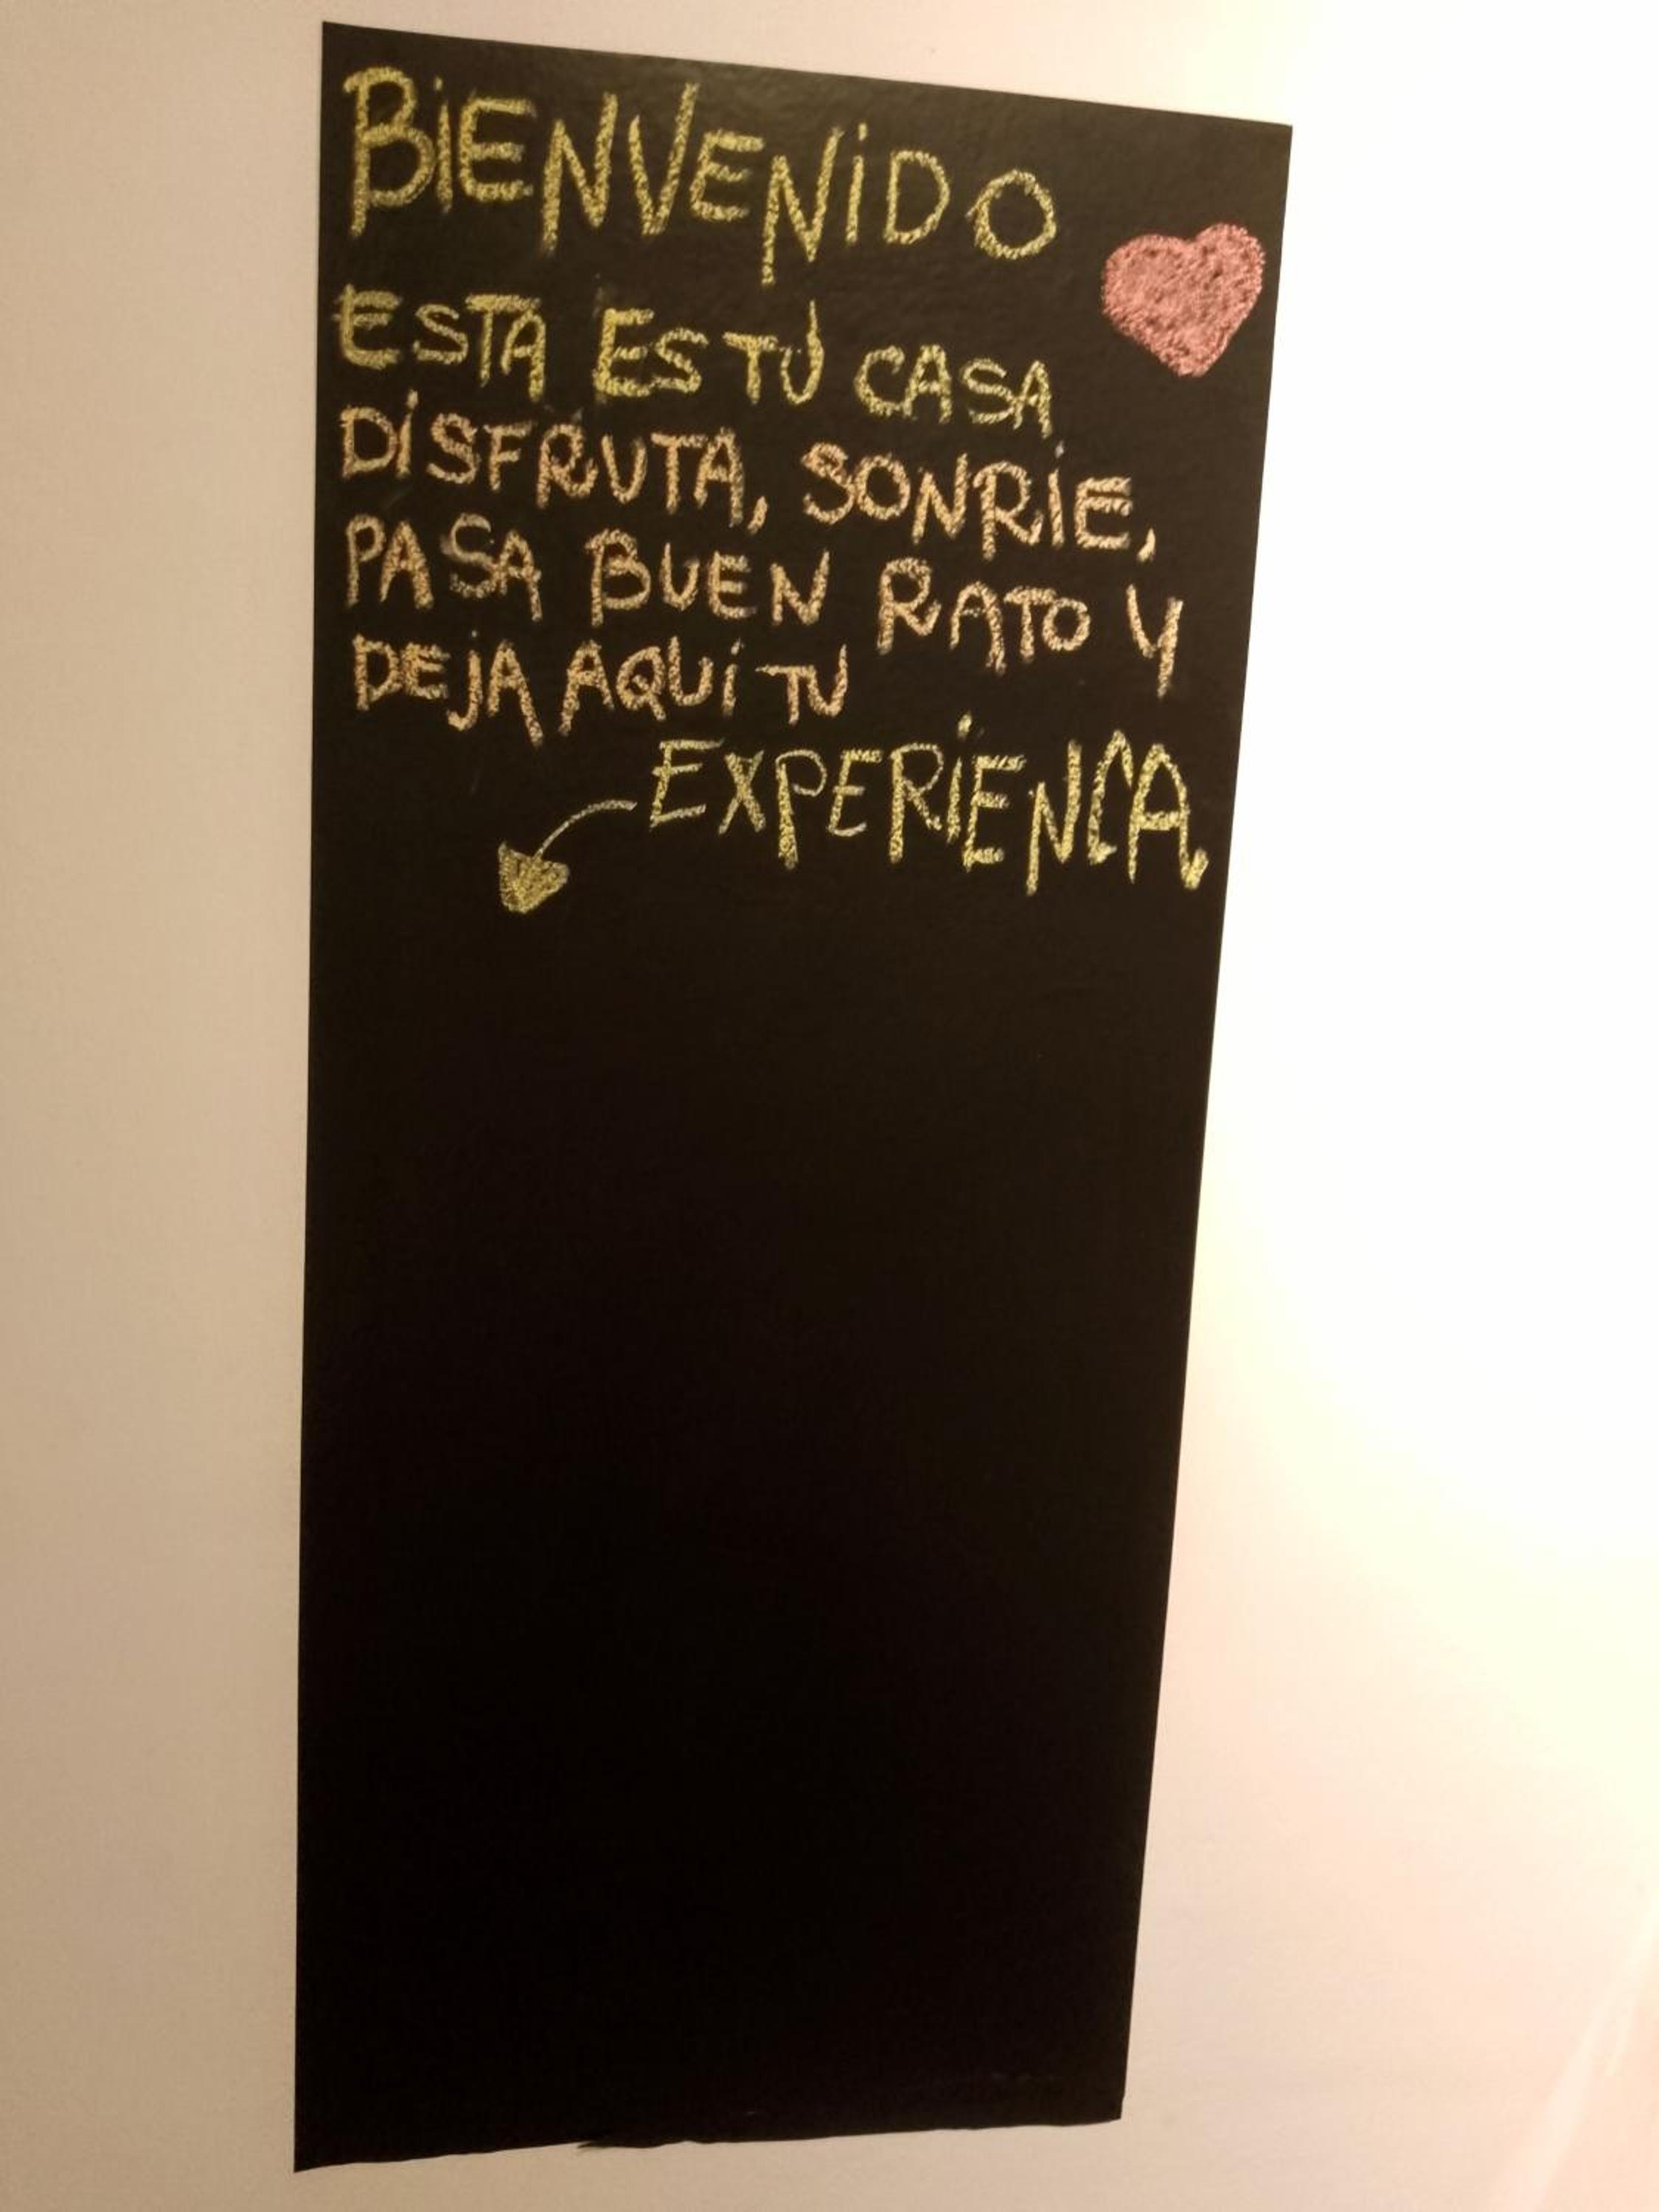 BiENVENiDO
ESTA ES TÚ CASA
DiSFRUTA, SONRiE,
PASA BUEN RATO Y
DEjA AQUÍ TU
EXPERiENCA